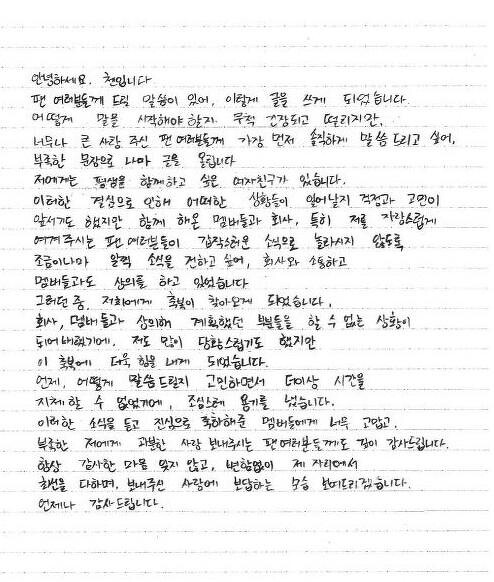 안녕하세요. 첸입니다
팬 여러분들께 드릴 말씀이 있어, 이렇게 글을 쓰게 되었습니다.
어떻게 말을 시작해야 할지 무척 긴장되고 떨리지만,
너무나 큰 사랑 주신 팬 여러분들께 가장 먼저 솔직하게 말씀드리고 싶어,
부족한 문장으로 나마 글을 올립니다
저에게는 평생을 함께하고 싶은 여자친구가 있습니다.
이러한 결심으로 인해 어떠한 상황들이 일어날지 걱정과 고민이
앞서기도 했지만 함께 해온 멤버들과 회사, 특히 저를 자랑스럽게
여겨주시는 팬 여러분들이 갑작스러운 소식으로 놀라시지 않도록
조금이나마 일찍 소식을 전하고 싶어, 회사와 소통하고
멤버들과도 상의를 하고 있었습니다
그러던 중, 저희에게 축복이 찾아오게 되었습니다.
회사, 멤버들과 상의해 계획했던 부분들을 할 수 없는 상황이
되어버렸기에, 저도 많이 당황스럽기도 했지만
이 축복에 더욱 힘을 내게 되었습니다.
언제, 어떻게 말씀드릴지 고민하면서 더이상 시간을
지체할 수 없었기에, 조심스레 용기를 냈습니다.
이러한 소식을 듣고 진심으로 축하해준 멤버들에게 너무 고맙고.
부족한 저에게 과분한 사랑 보내주시는 팬여러분들께도 깊이 감사드립니다.
항상 감사한 마음 잊지 않고, 변함없이 제 자리에서
최선을 다하며, 보내주신 사랑에 보답하는 모습 보여드리겠습니다.
언제나 감사드립니다.